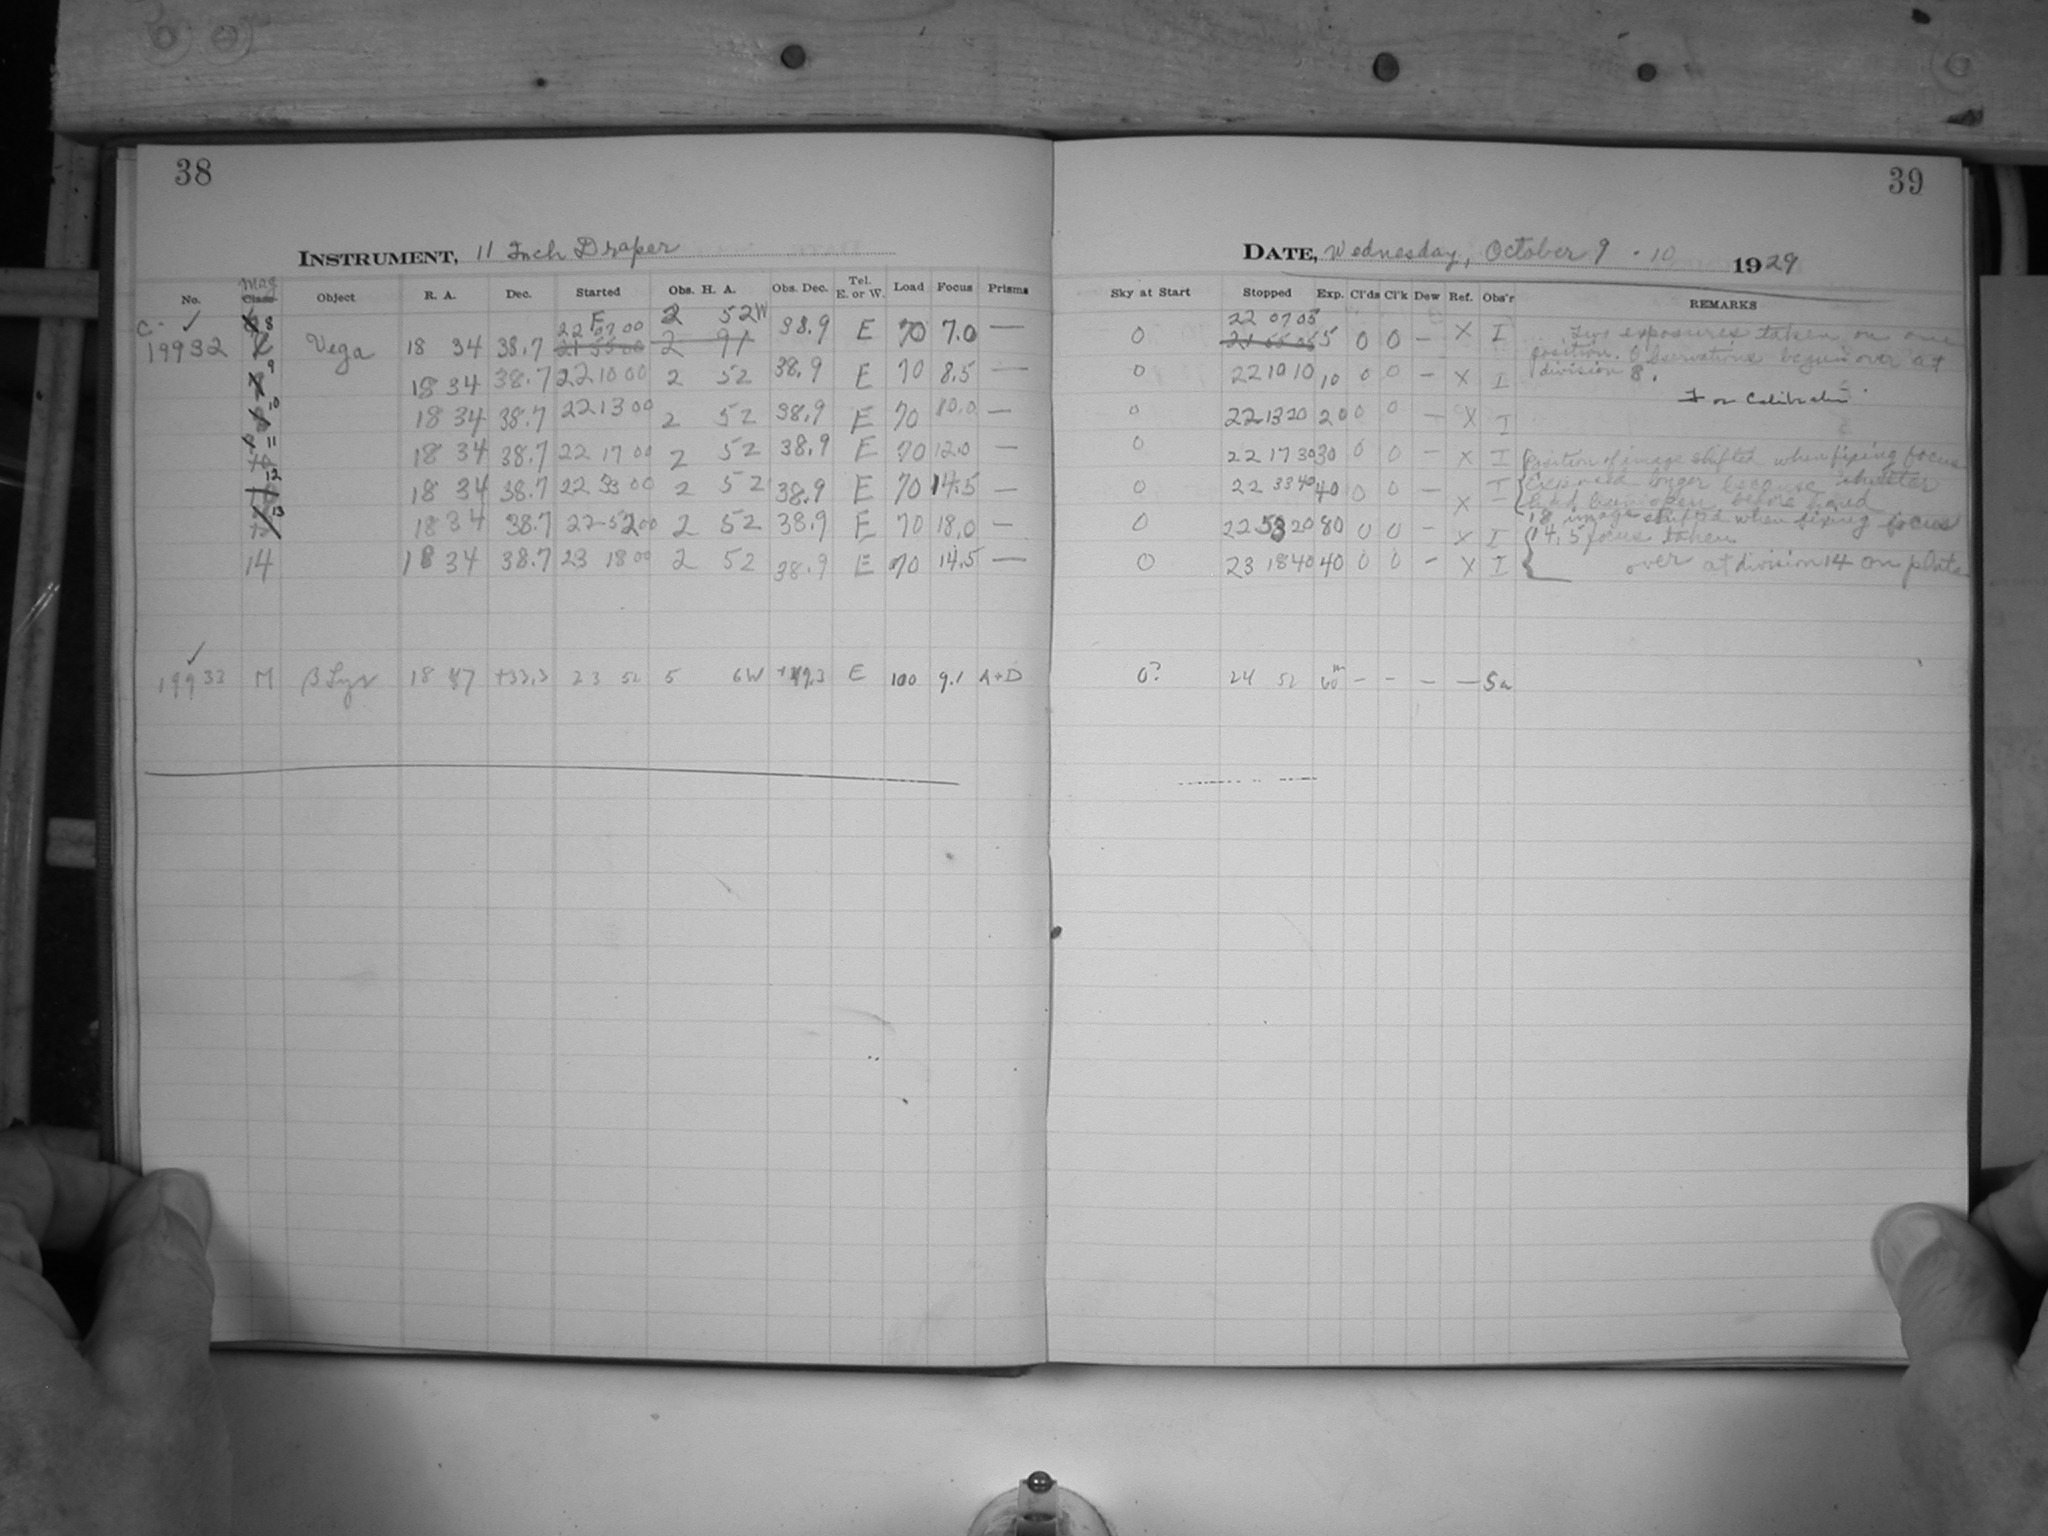 38
39
INSTRUMENT, 11 Inch Draper
DATE, Wednesday, October 9 - 10 1929
No. Mag Class Object R. A. Dec. Started Obs. H. A. Obs. Dec. Tel. E. or W. Load Focus Prisms Sky at Start Stopped Exp. Cl'ds Cl'k Dew Ref. Obs'r REMARKS
C. ✓ 8 22 07 00 2 52W 22 07 05
19932 Vega 18 34 38.7 21 55 00 2 41 38.9 E 70 7.0 — 0 21 55 05 5 0 0 — X I Two exposures taken on one
9 18 34 38.7 22 10 00 2 52 38.9 E 70 8.5 — 0 22 10 10 10 0 0 — X I position. Observations begun over at division 8.
10 18 34 38.7 22 13 00 2 52 38.9 E 70 10.0 — 0 22 13 20 20 0 0 — X I For Calibration
11 18 34 38.7 22 17 00 2 52 38.9 E 70 12.0 — 0 22 17 30 30 0 0 — X I Position of image shifted when fixing focus
12 18 34 38.7 22 33 00 2 52 38.9 E 70 14.5 — 0 22 33 40 40 0 0 — X I longer because shutter had been open before
13 18 34 38.7 22 52 00 2 52 38.9 E 70 18.0 — 0 22 53 20 80 0 0 — X I 18 image shifted when fixing focus
14 18 34 38.7 23 18 00 2 52 38.9 E 70 14.5 — 0 23 18 40 40 0 0 — X I 14.5 focus taken over at division 14 on plate
✓
19933 M β Lyr 18 47 +33.3 23 52 5 6W E 100 9.1 A+D 0? 24 52 60m — — — — Sa